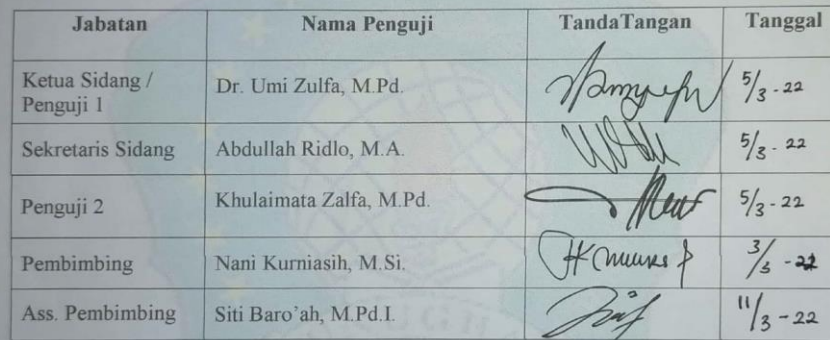 Jabatan Nama Penguji TandaTangan Tanggal
Ketua Sidang / Dr. Umi Zulfa, M.Pd. 5/3-22
Penguji 1
Sekretaris Sidang Abdullah Ridlo, M.A. 5/3-22
Penguji 2 Khulaimata Zalfa, M.Pd. 5/3-22
Pembimbing Nani Kurniasih, M.Si. 3/3-22
Ass. Pembimbing Siti Baro'ah, M.Pd.I. 11/3-22